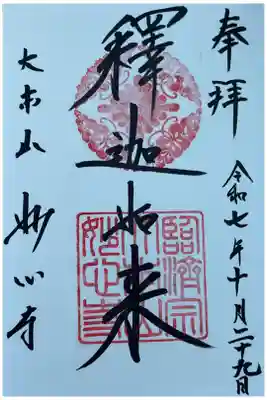 奉拝
令和七年十月二十九日
釋迦如来
臨済宗
大本山
妙心寺